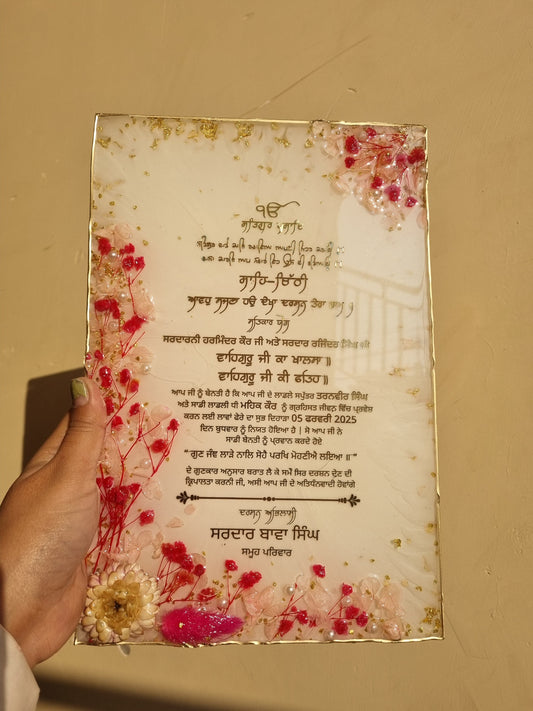 ੴ
ਸਤਿਗੁਰ ਪ੍ਰਸਾਦਿ
ਸਾਹਿ-ਚਿੱਠੀ
ਆਵਹੁ ਸਜਣਾ ਹਉ ਦੇਖਾ ਦਰਸਨੁ ਤੇਰਾ ਰਾਮ ॥
ਸਤਿਕਾਰ ਯੋਗ
ਸਰਦਾਰਨੀ ਹਰਮਿੰਦਰ ਕੌਰ ਜੀ ਅਤੇ ਸਰਦਾਰ ਰਜਿੰਦਰ ਸਿੰਘ ਜੀ
ਵਾਹਿਗੁਰੂ ਜੀ ਕਾ ਖਾਲਸਾ ॥
ਵਾਹਿਗੁਰੂ ਜੀ ਕੀ ਫਤਿਹ ॥
ਆਪ ਜੀ ਨੂੰ ਬੇਨਤੀ ਹੈ ਕਿ ਆਪ ਜੀ ਦੇ ਲਾਡਲੇ ਸਪੁੱਤਰ ਤਰਨਵੀਰ ਸਿੰਘ
ਅਤੇ ਸਾਡੀ ਲਾਡਲੀ ਧੀ ਮਹਿਕ ਕੌਰ ਨੂੰ ਗ੍ਰਹਿਸਤ ਜੀਵਨ ਵਿੱਚ ਪ੍ਰਵੇਸ਼
ਕਰਨ ਲਈ ਲਾਵਾਂ ਫੇਰੇ ਦਾ ਸ਼ੁਭ ਦਿਹਾੜਾ 05 ਫਰਵਰੀ 2025
ਦਿਨ ਬੁਧਵਾਰ ਨੂੰ ਨਿਯਤ ਹੋਇਆ ਹੈ | ਸੋ ਆਪ ਜੀ ਨੇ
ਸਾਡੀ ਬੇਨਤੀ ਨੂੰ ਪ੍ਰਵਾਨ ਕਰਦੇ ਹੋਏ
" ਗੁਣ ਜੰਞ ਲਾੜੇ ਨਾਲਿ ਸੋਹੈ ਪਰਖਿ ਮੋਹਣੀਐ ਲਇਆ ॥ "
ਦੇ ਗੁਣਕਾਰ ਅਨੁਸਾਰ ਬਰਾਤ ਲੈ ਕੇ ਸਮੇਂ ਸਿਰ ਦਰਸ਼ਨ ਦੇਣ ਦੀ
ਕ੍ਰਿਪਾਲਤਾ ਕਰਨੀ ਜੀ, ਅਸੀ ਆਪ ਜੀ ਦੇ ਅਤਿਧੰਨਵਾਦੀ ਹੋਵਾਂਗੇ
ਦਰਸ਼ਨ ਅਭਿਲਾਸ਼ੀ
ਸਰਦਾਰ ਬਾਵਾ ਸਿੰਘ
ਸਮੂਹ ਪਰਿਵਾਰ